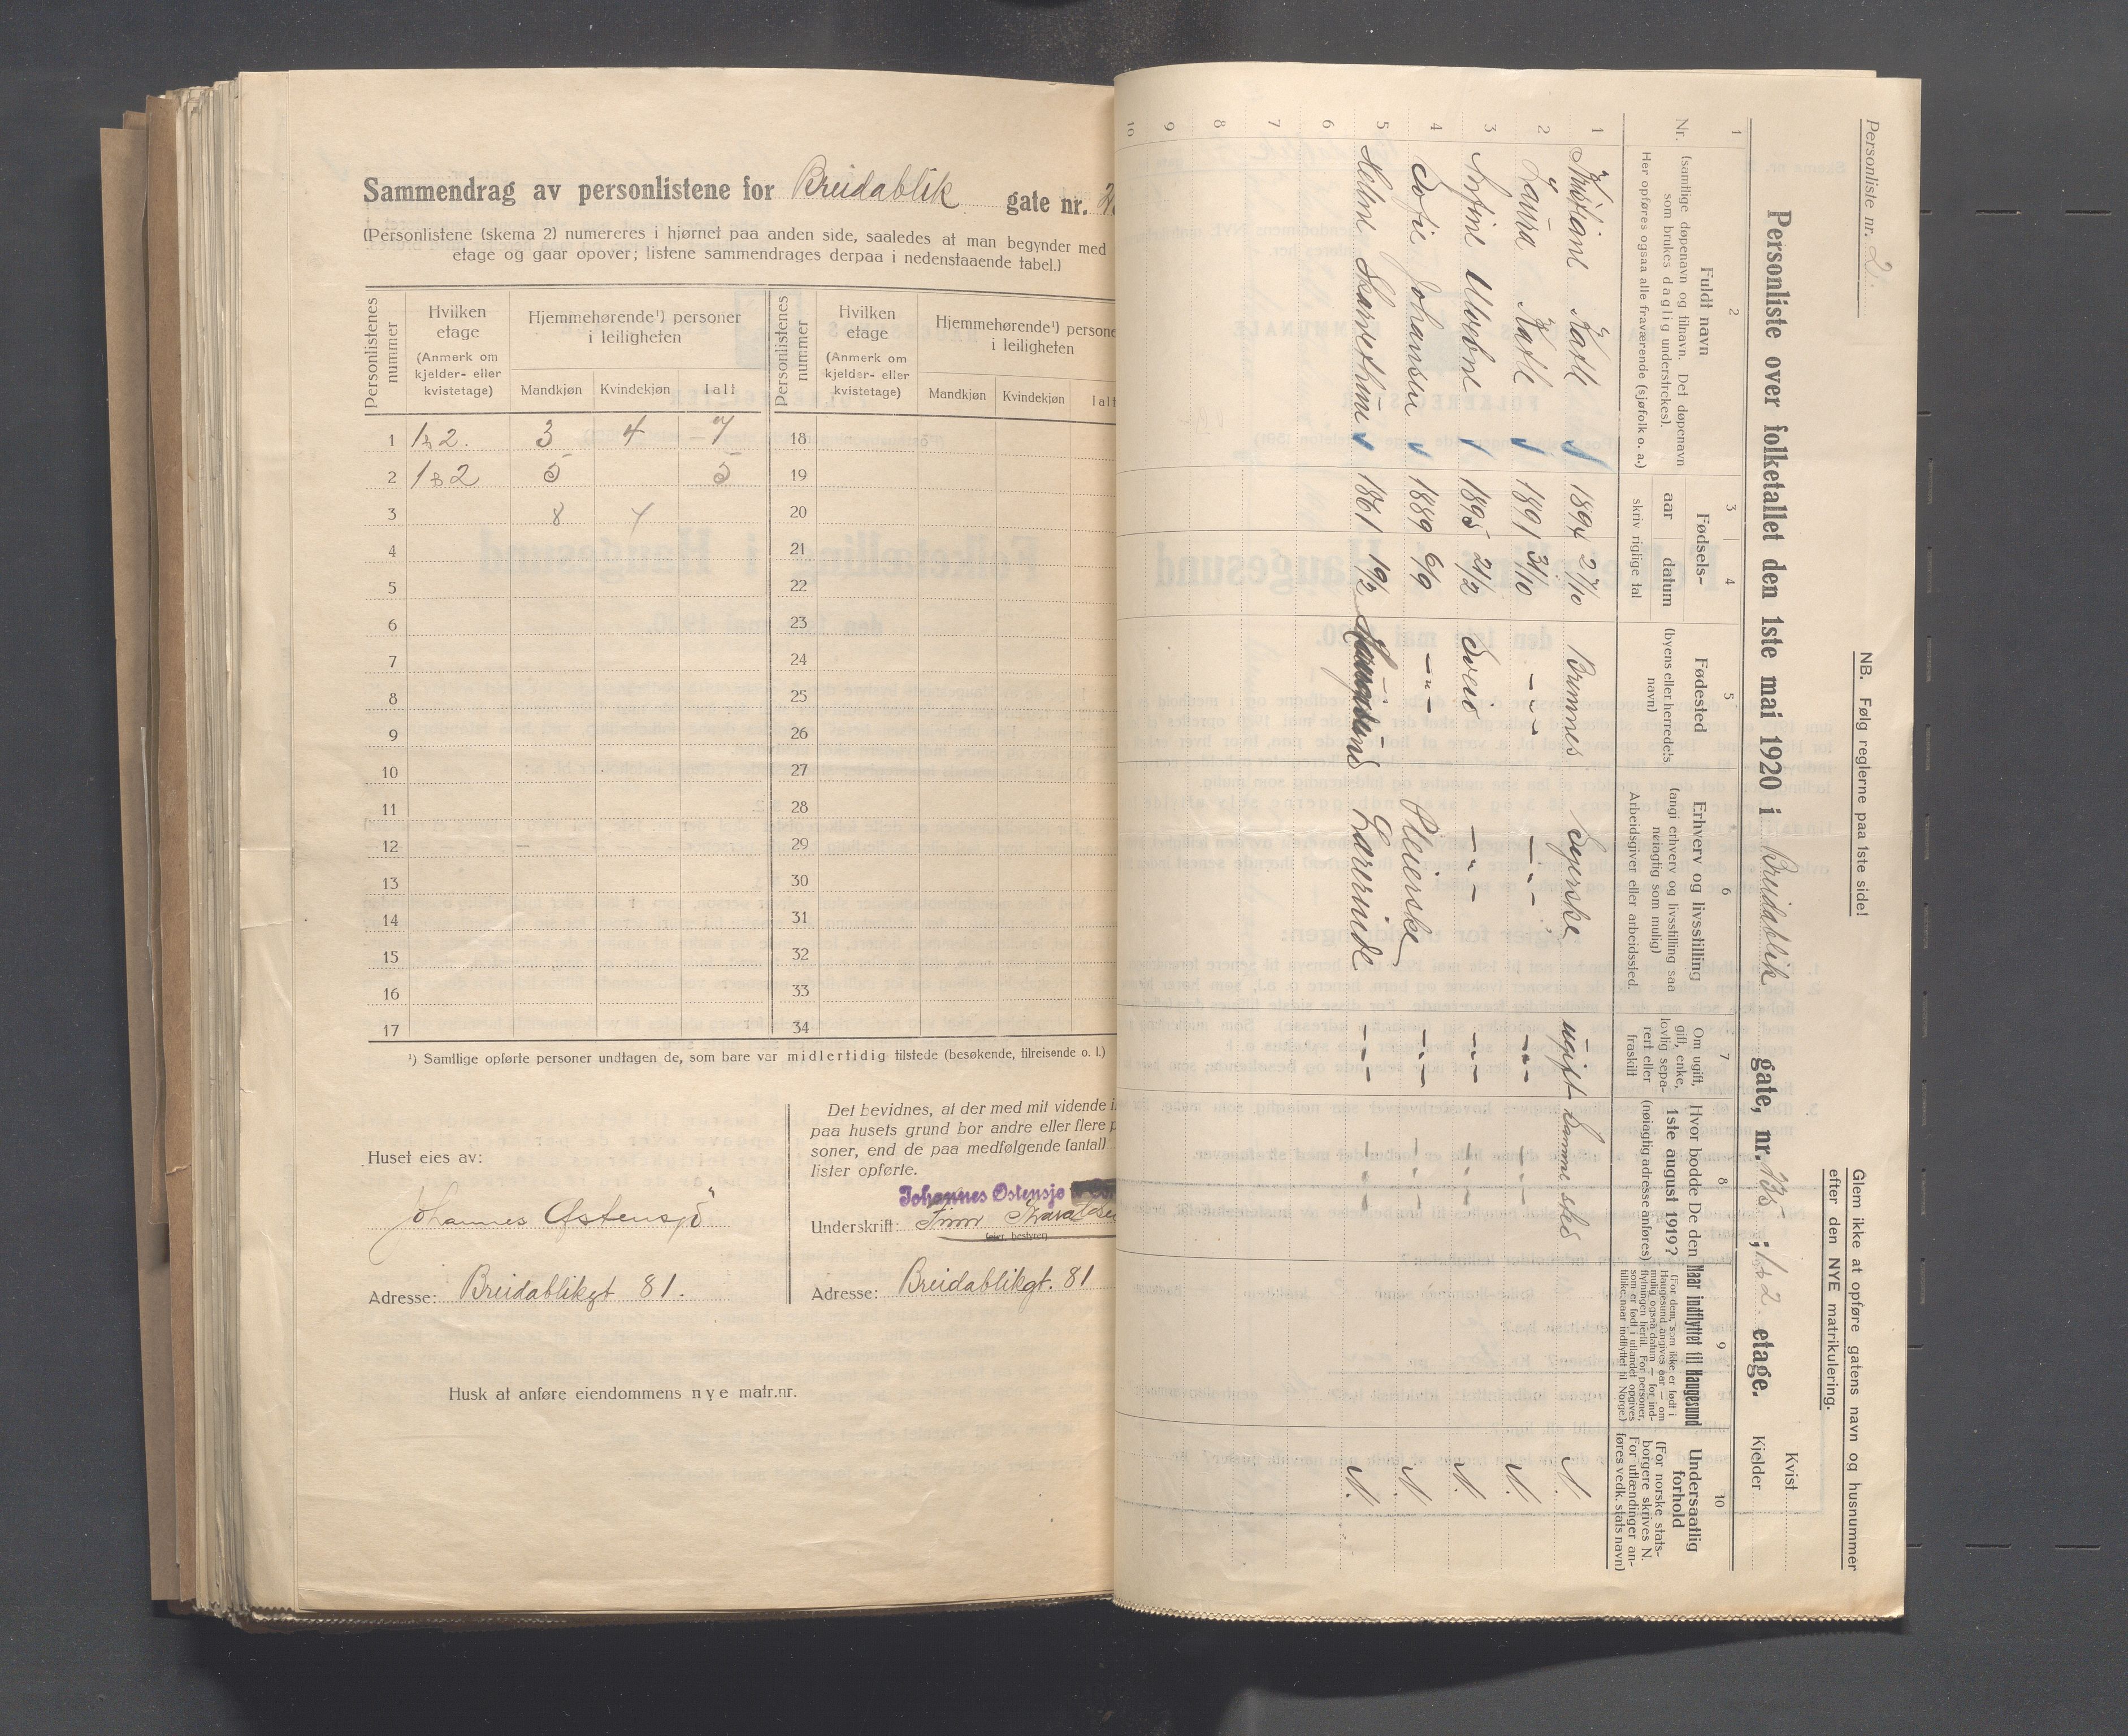 Sammendrag av personlistene for Breidablik gate nr.
(Personlistene (skema 2) numereres i hjørnet paa anden side, saaledes at man begynder med
etage og gaar opover; listene sammendrages derpaa i nedenstaaende tabel.)
Personlistenes nummer
Hvilken etage (Anmerk om kjelder- eller kvistetage)
Hjemmehørende¹) personer i leiligheten
Mandkjøn Kvindekjøn Ialt
Personlistenes nummer
Hvilken etage (Anmerk om kjelder- eller kvistetage)
Hjemmehørende¹) persone
i leiligheten
Mandkjøn Kvindekjøn Ialt
1 1 & 2. 3 4 7 18
2 1 & 2 5 5 19
3 8 4 20
4 21
5 22
6 23
7 24
8 25
9 26
10 27
11 28
12 29
13 30
14 31
15 32
16 33
17 34
¹) Samtlige opførte personer undtagen de, som bare var midlertidig tilstede (besøkende, tilreisende o. l.)
Huset eies av:
Johannes Østensjö
Adresse: Breidablikgt 81.
Husk at anføre eiendommens nye matr.nr.
Det bevidnes, at der med mit vidende i
paa husets grund bor andre eller flere p
soner, end de paa medfølgende (antal)
lister opførte.
Johannes Østensjø
Underskrift: Finn
(eier, bestyrer)
Adresse: Breidablikgt. 81
Personliste nr. 2.
NB. Følg reglerne paa 1ste side!
Glem ikke at opføre gatens navn og husnummer
efter den NYE matrikulering.
Personliste over folketallet den 1ste mai 1920 i Breidablik gate, nr. 135 ; 1 & 2 etage.
Kvist
Kjelder
1 2 3 4 5 6 7 8 9 10
Nr.
Fuldt navn
(samtlige døpenavn og tilnavn. Det døpenavn
som brukes daglig understrekes).
Her opføres ogsaa alle fraværende (sjøfolk o. a.)
Fødsels-
aar datum
skriv riglige tal
Fødested
(byens eller herredets
navn)
Erhverv og livsstilling
(angi erhverv og livsstilling saa
nøiagtig som mulig)
Arbeidsgiver eller arbeidssted.
Om ugift,
gift, enke,
lovlig sepa-
rert eller
fraskilt
Hvor bodde De den
1ste august 1919?
(nøiagtig adresse anføres)
Naar indflyttet til Haugesund
(For dem, som ikke er født i
Haugesund angives aar — om
mulig ogsaa datum — for ind-
flytningen hertil. For personer,
som er født i utlandet opgives
tillike naar indflyttet til Norge.)
Undersaatlig
forhold
(For norske stats-
borgere skrives N.
For utlændinger an-
føres vedk. stats navn)
1 Kristiane Katle 1894 27/10 Bremnes Syerske ugift Samme sted N.
2 Laura Katle 1891 31/10 -"- -"- -"- -"- N.
3 1895 21/2 Sveio -"- -"- -"- N.
4 Sofie Johansen 1889 6/9 -"- Pleierske -"- -"- N.
5 1861 19/2 Haugesund Lærerinde -"- -"- N.
6
7
8
9
10